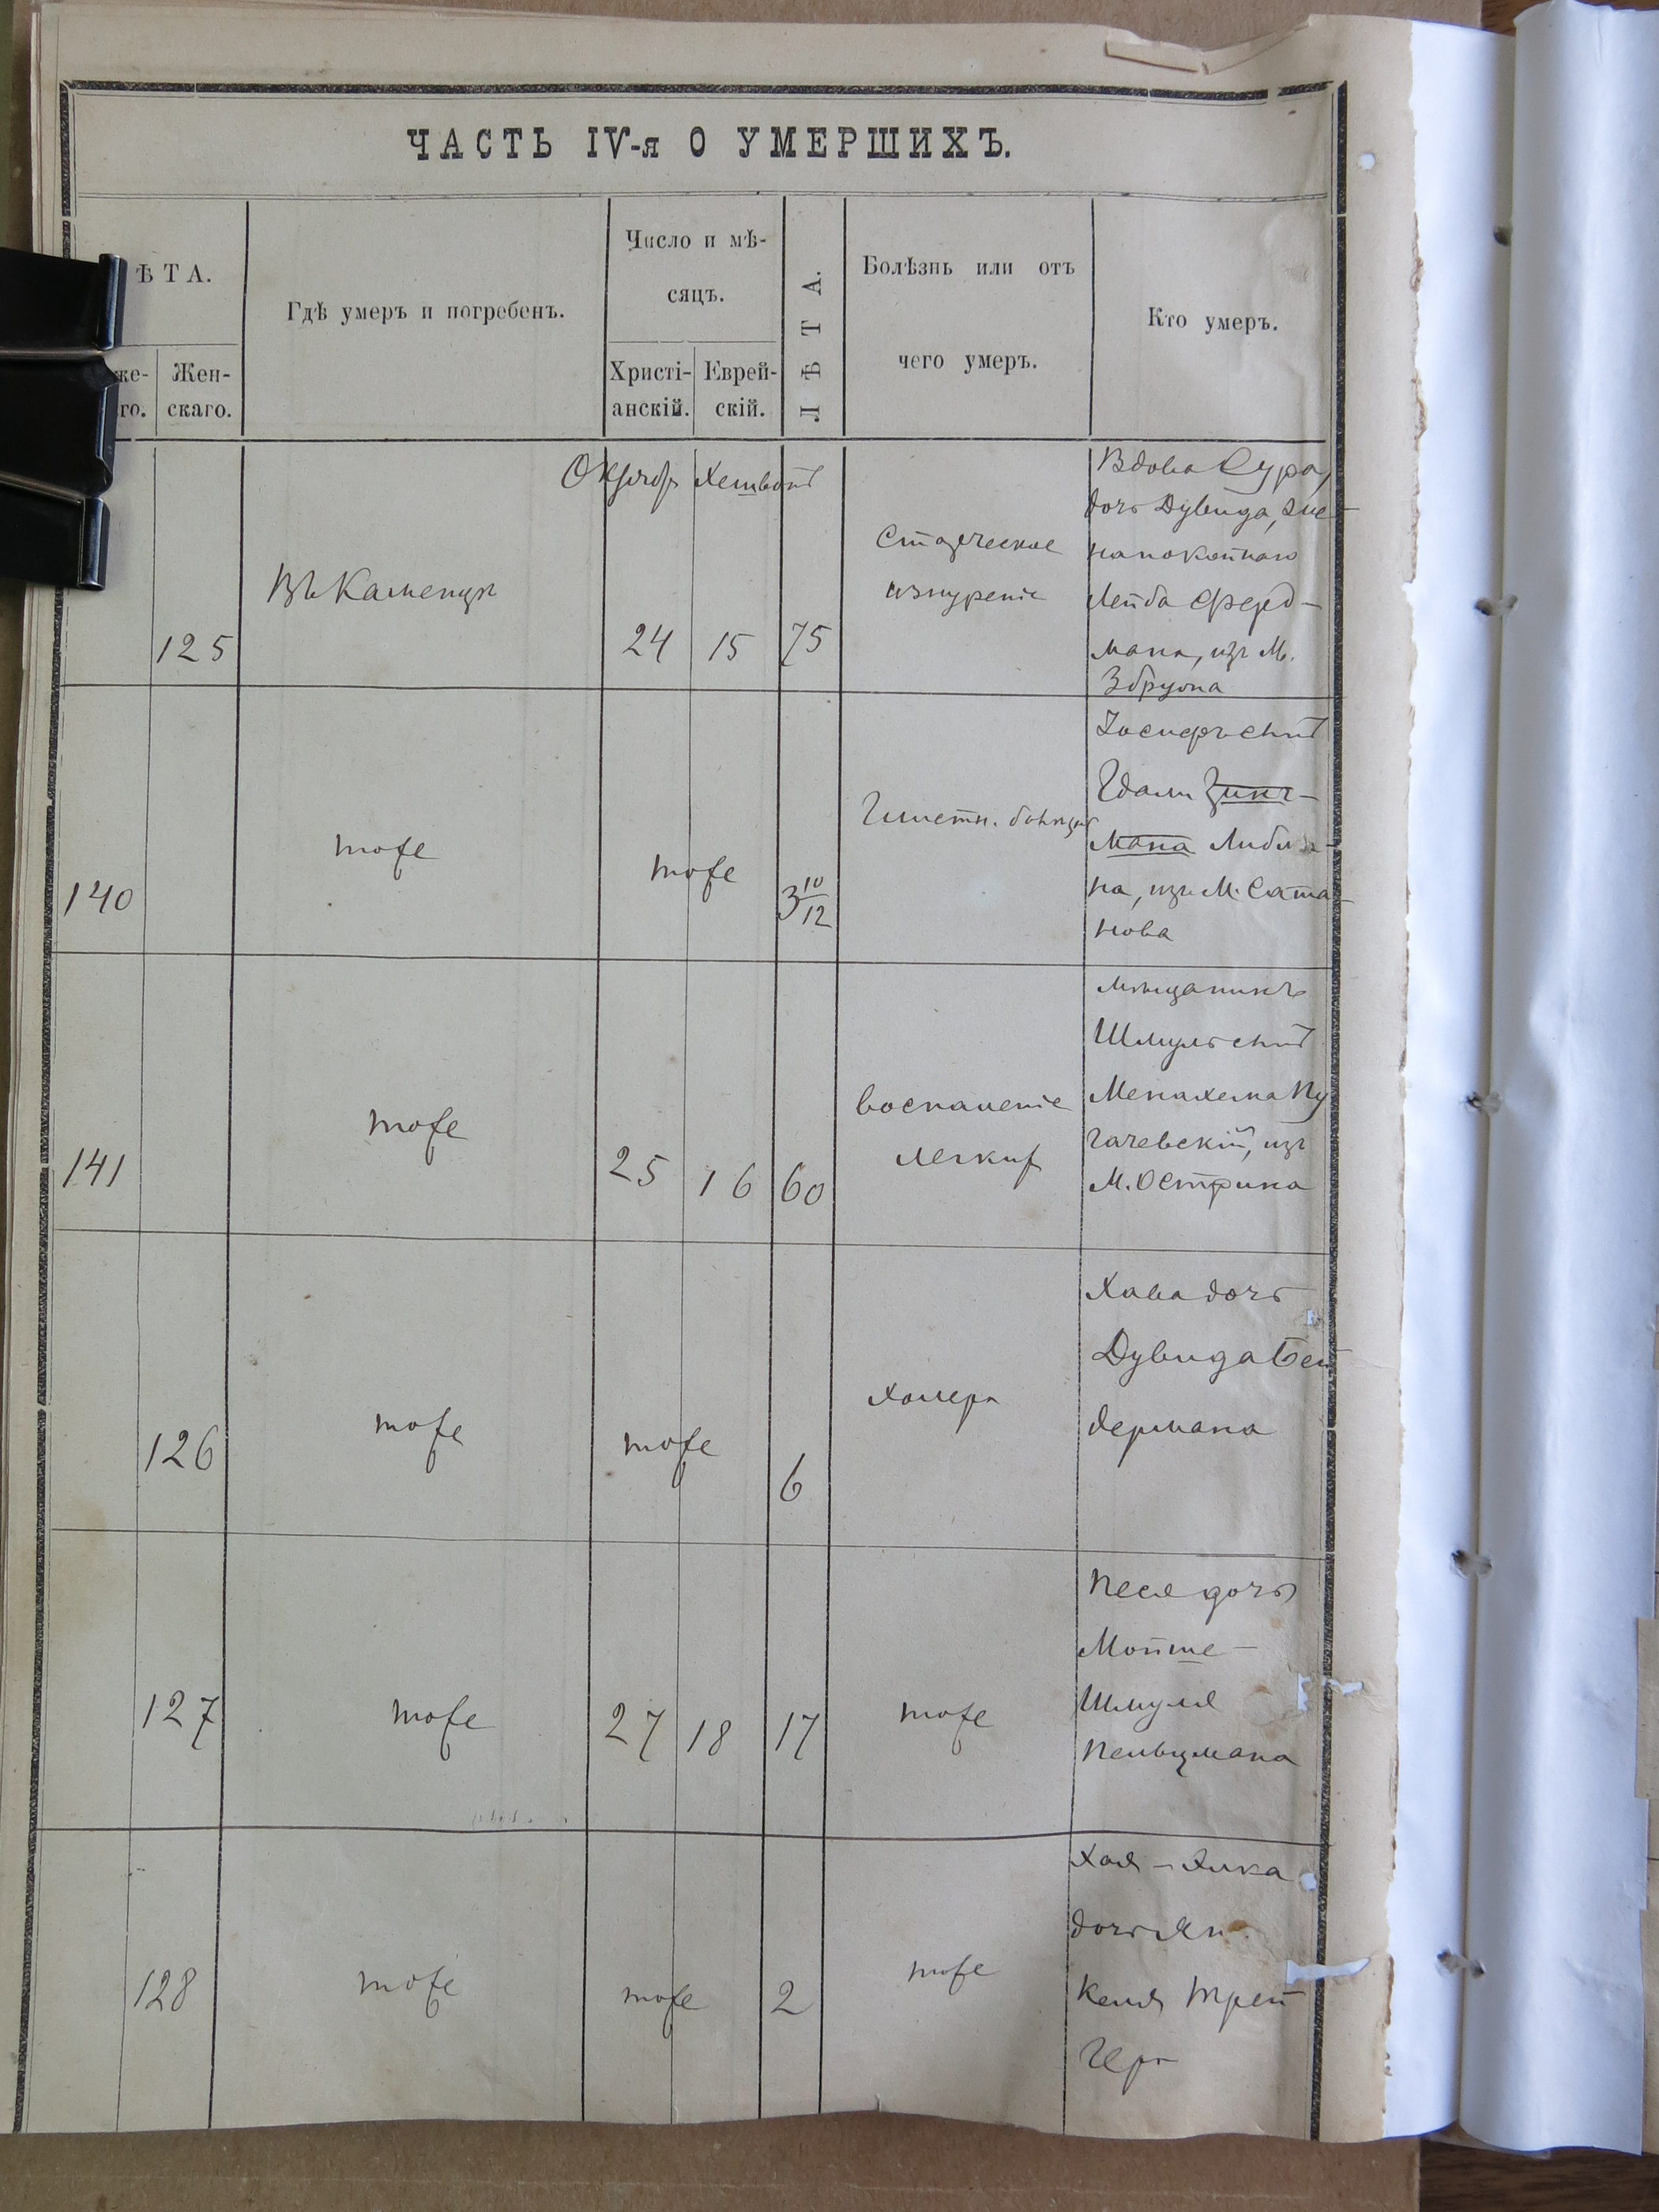 ЧАСТЬ IV-я О УМЕРШИХЪ.
ѢТА.
же-
го.
Жен-
скаго.
Гдѣ умеръ и погребенъ.
Число и мѣ-
сяцъ.
Христі-
анскій.
Еврей-
скій.
ЛѢТА.
Болѣзнь или отъ
чего умеръ.
Кто умеръ.
Октябр Хешвонъ
125
Въ Каменцѣ
24
15
75
Старческое
изнуреніе
Вдова Сура,
дочь Дувида, же-
на покойнаго
Лейба Фред-
мана, изъ М.
Збруона
140
тоже
тоже
3 10/12
Глистн. болѣзнь
Іосифъ сынъ
Гдали Зинг-
мана Либма-
на, изъ М. Сата-
нова
141
тоже
25
16
60
воспаленіе
легких
мѣщанинъ
Шмуль сынъ
Менахема Пу
гачевскій, изъ
М.
126
тоже
тоже
6
холера
Хава дочь
Дувида Бей
дермана
127
тоже
27
18
17
тоже
Песя дочь
Мойше-
Шмуля
Пельцмана
128
тоже
тоже
2
тоже
Хая-
дочь Ян
келя Трей
гера